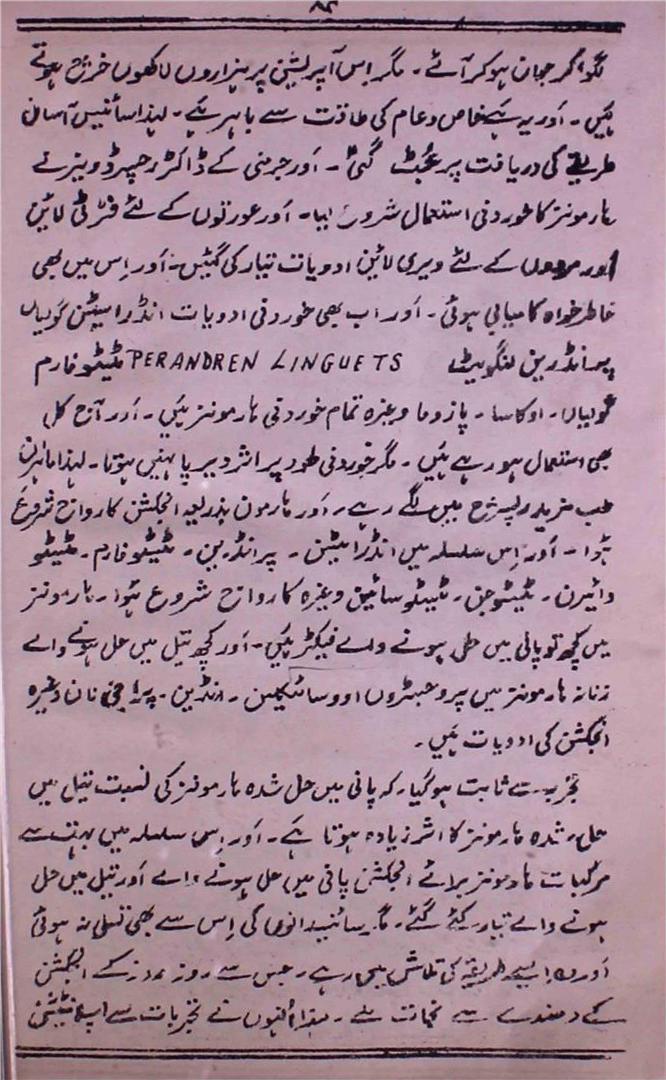 ۸۲
لگوا کر جوان ہو کر آئے۔ مگر اس آپریشن پر ہزاروں لاکھوں خرچ ہوتے
ہیں۔ اور یہ ہے خاص و عام کی طاقت سے باہر ہے۔ لہذا سائنس آسان
طریقے کی دریافت پر جُٹ گئی۔ اور جرمنی کے ڈاکٹر رچرڈ ویز نے
ہارمونز کا خوردنی استعمال شروع کیا۔ اور عورتوں کے لئے فرٹی لائین
اور مردوں کے لئے ویری لائین ادویات تیار کی گئیں۔ اور اس میں بھی
خاطر خواہ کامیابی ہوئی۔ اور اب بھی خوردنی ادویات انڈراسیٹن گولیاں
پیرانڈرین لنگویٹس PERANDREN LINGUETS ٹیٹوفارم
گولیاں۔ اوکاسا۔ پازوما وغیرہ تمام خوردنی ہارمونز ہیں۔ اور آج کل
بھی استعمال ہو رہے ہیں۔ مگر خوردنی طور پر اثر دیرپا نہیں ہوتا۔ لہذا ماہرین
طب مزید ریسرچ میں لگے رہے۔ اور ہارمون بذریعہ انجکشن کا رواج شروع
ہوا۔ اور اس سلسلہ میں انڈراسیٹن۔ پرانڈرین۔ ٹیٹوفارم۔ ٹیٹو
وائیرن۔ ٹیٹوجن۔ ٹیٹوسائین وغیرہ کا رواج شروع ہوا۔ ہارمونز
میں کچھ تو پانی میں حل ہونے والے فیکٹر ہیں۔ اور کچھ تیل میں حل ہونے والے
زنانہ ہارمونز میں پروجیٹرون اووسائیکلین۔ انڈین۔ پراجی نان وغیرہ
انجکشن کی ادویات ہیں۔
تجربہ سے ثابت ہو گیا۔ کہ پانی میں حل شدہ ہارمونز کی نسبت تیل میں
حل شدہ ہارمونز کا اثر زیادہ ہوتا ہے۔ اور اس سلسلہ میں بہت سے
مرکبات ہارمونز برائے انجکشن پانی میں حل ہونے والے اور تیل میں حل
ہونے والے تیار کئے گئے۔ مگر سائنسدانوں کی اس سے بھی تسلی نہ ہوئی
اور وہ ایسے طریقہ کی تلاش میں رہے۔ جس سے روز روز کے انجکشن
کے دھندے سے نجات ملے۔ لہذا اُنہوں نے تجربات سے